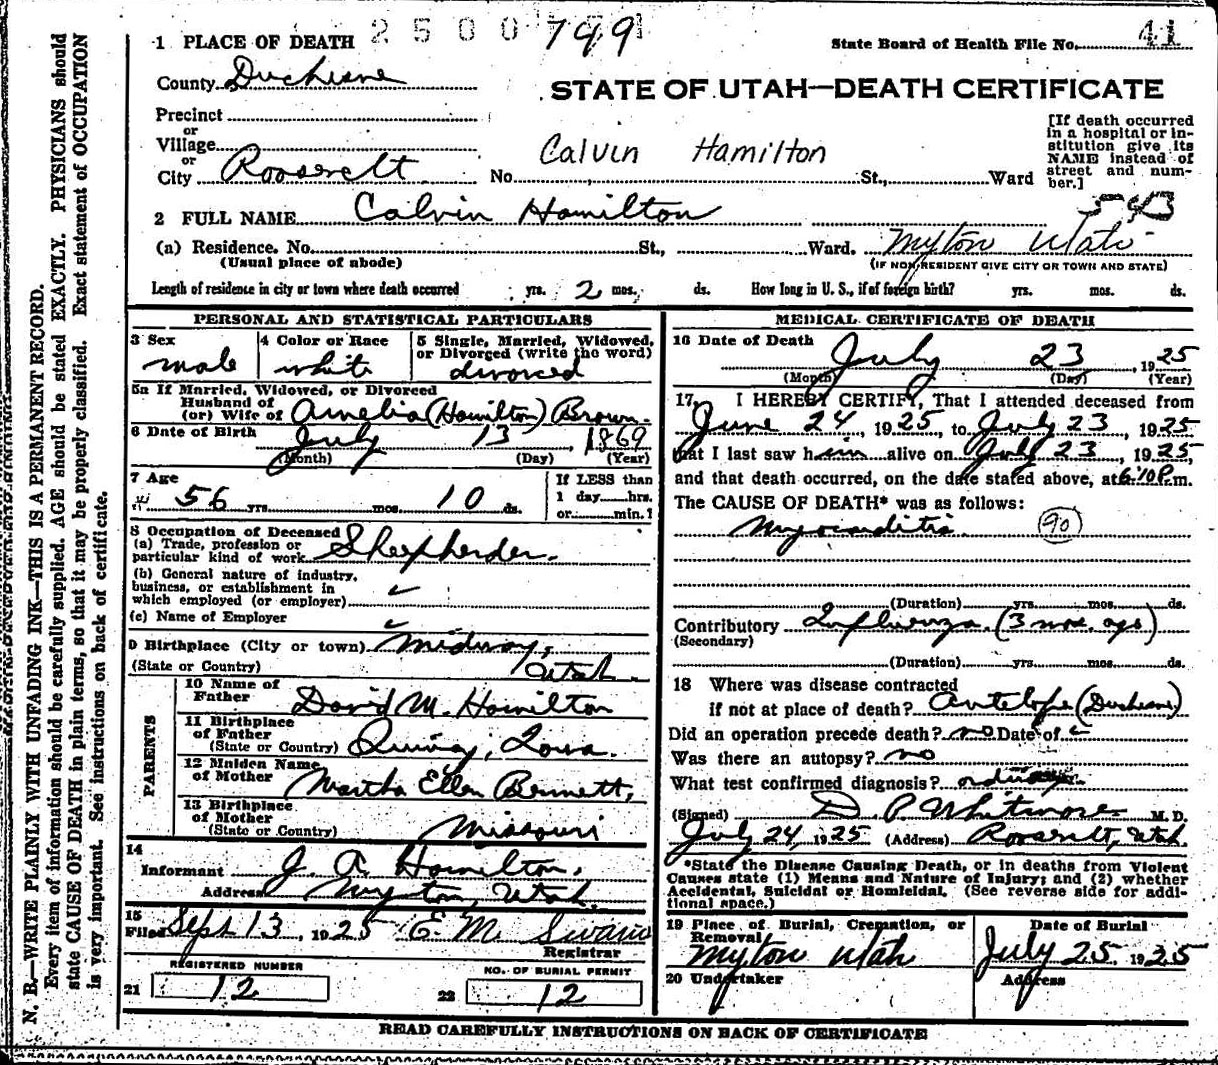 N. B.—WRITE PLAINLY WITH UNFADING INK—THIS IS A PERMANENT RECORD.
Every item of information should be carefully supplied. AGE should be stated EXACTLY. PHYSICIANS should
state CAUSE OF DEATH in plain terms, so that it may be properly classified. Exact statement of OCCUPATION
is very important. See instructions on back of certificate.
2500 799
1 PLACE OF DEATH
State Board of Health File No. 41
County Duchesne
STATE OF UTAH—DEATH CERTIFICATE
Precinct
or
Village
or
City Roosevelt
Calvin Hamilton
No. St., Ward
[If death occurred
in a hospital or in-
stitution give its
NAME instead of
street and num-
ber.]
543
2 FULL NAME Calvin Hamilton
(a) Residence. No. St., Ward. Myton Utah
(Usual place of abode)
(IF NON-RESIDENT GIVE CITY OR TOWN AND STATE)
Length of residence in city or town where death occurred yrs. 2 mos. ds. How long in U. S., if of foreign birth? yrs. mos. ds.
PERSONAL AND STATISTICAL PARTICULARS
3 Sex
male
4 Color or Race
white
5 Single, Married, Widowed,
or Divorced (write the word)
divorced
5a If Married, Widowed, or Divorced
Husband of
(or) Wife of Amelia (Hamilton) Brown.
6 Date of Birth
July 13, 1869
(Month) (Day) (Year)
7 Age
56 yrs. mos. 10 ds.
If LESS than
1 day hrs.
or min.?
8 Occupation of Deceased
(a) Trade, profession or
particular kind of work Sheepherder.
(b) General nature of industry,
business, or establishment in
which employed (or employer)
(c) Name of Employer
9 Birthplace (City or town) Midway,
(State or Country) Utah.
PARENTS
10 Name of
Father David M. Hamilton
11 Birthplace
of Father
(State or Country) Quincy, Iowa.
12 Maiden Name
of Mother Martha Ellen Bennett,
13 Birthplace
of Mother
(State or Country) Missouri
14
Informant J. A. Hamilton,
Address Myton, Utah.
15
Filed Sept 13, 1925 E. M. Swain
Registrar
REGISTERED NUMBER
21 12
NO. OF BURIAL PERMIT
22 12
MEDICAL CERTIFICATE OF DEATH
16 Date of Death
July 23, 1925
(Month) (Day) (Year)
17. I HEREBY CERTIFY, That I attended deceased from
June 24, 1925, to July 23, 1925
that I last saw him alive on July 23, 1925,
and that death occurred, on the date stated above, at 6:10 P.m.
The CAUSE OF DEATH* was as follows:
Myocarditis. 90
(Duration) yrs. mos. ds.
Contributory Influenza. (3 mos. ago)
(Secondary)
(Duration) yrs. mos. ds.
18 Where was disease contracted
if not at place of death? Antelope (Duchesne)
Did an operation precede death? no Date of
Was there an autopsy? no
What test confirmed diagnosis? ordinary.
(Signed) D. P. Whitmore M. D.
July 24, 1925 (Address) Roosevelt, Utah.
*State the Disease Causing Death, or in deaths from Violent
Causes state (1) Means and Nature of Injury; and (2) whether
Accidental, Suicidal or Homicidal. (See reverse side for addi-
tional space.)
19 Place of Burial, Cremation, or
Removal
Myton Utah
Date of Burial
July 25. 1925
20 Undertaker
Address
READ CAREFULLY INSTRUCTIONS ON BACK OF CERTIFICATE